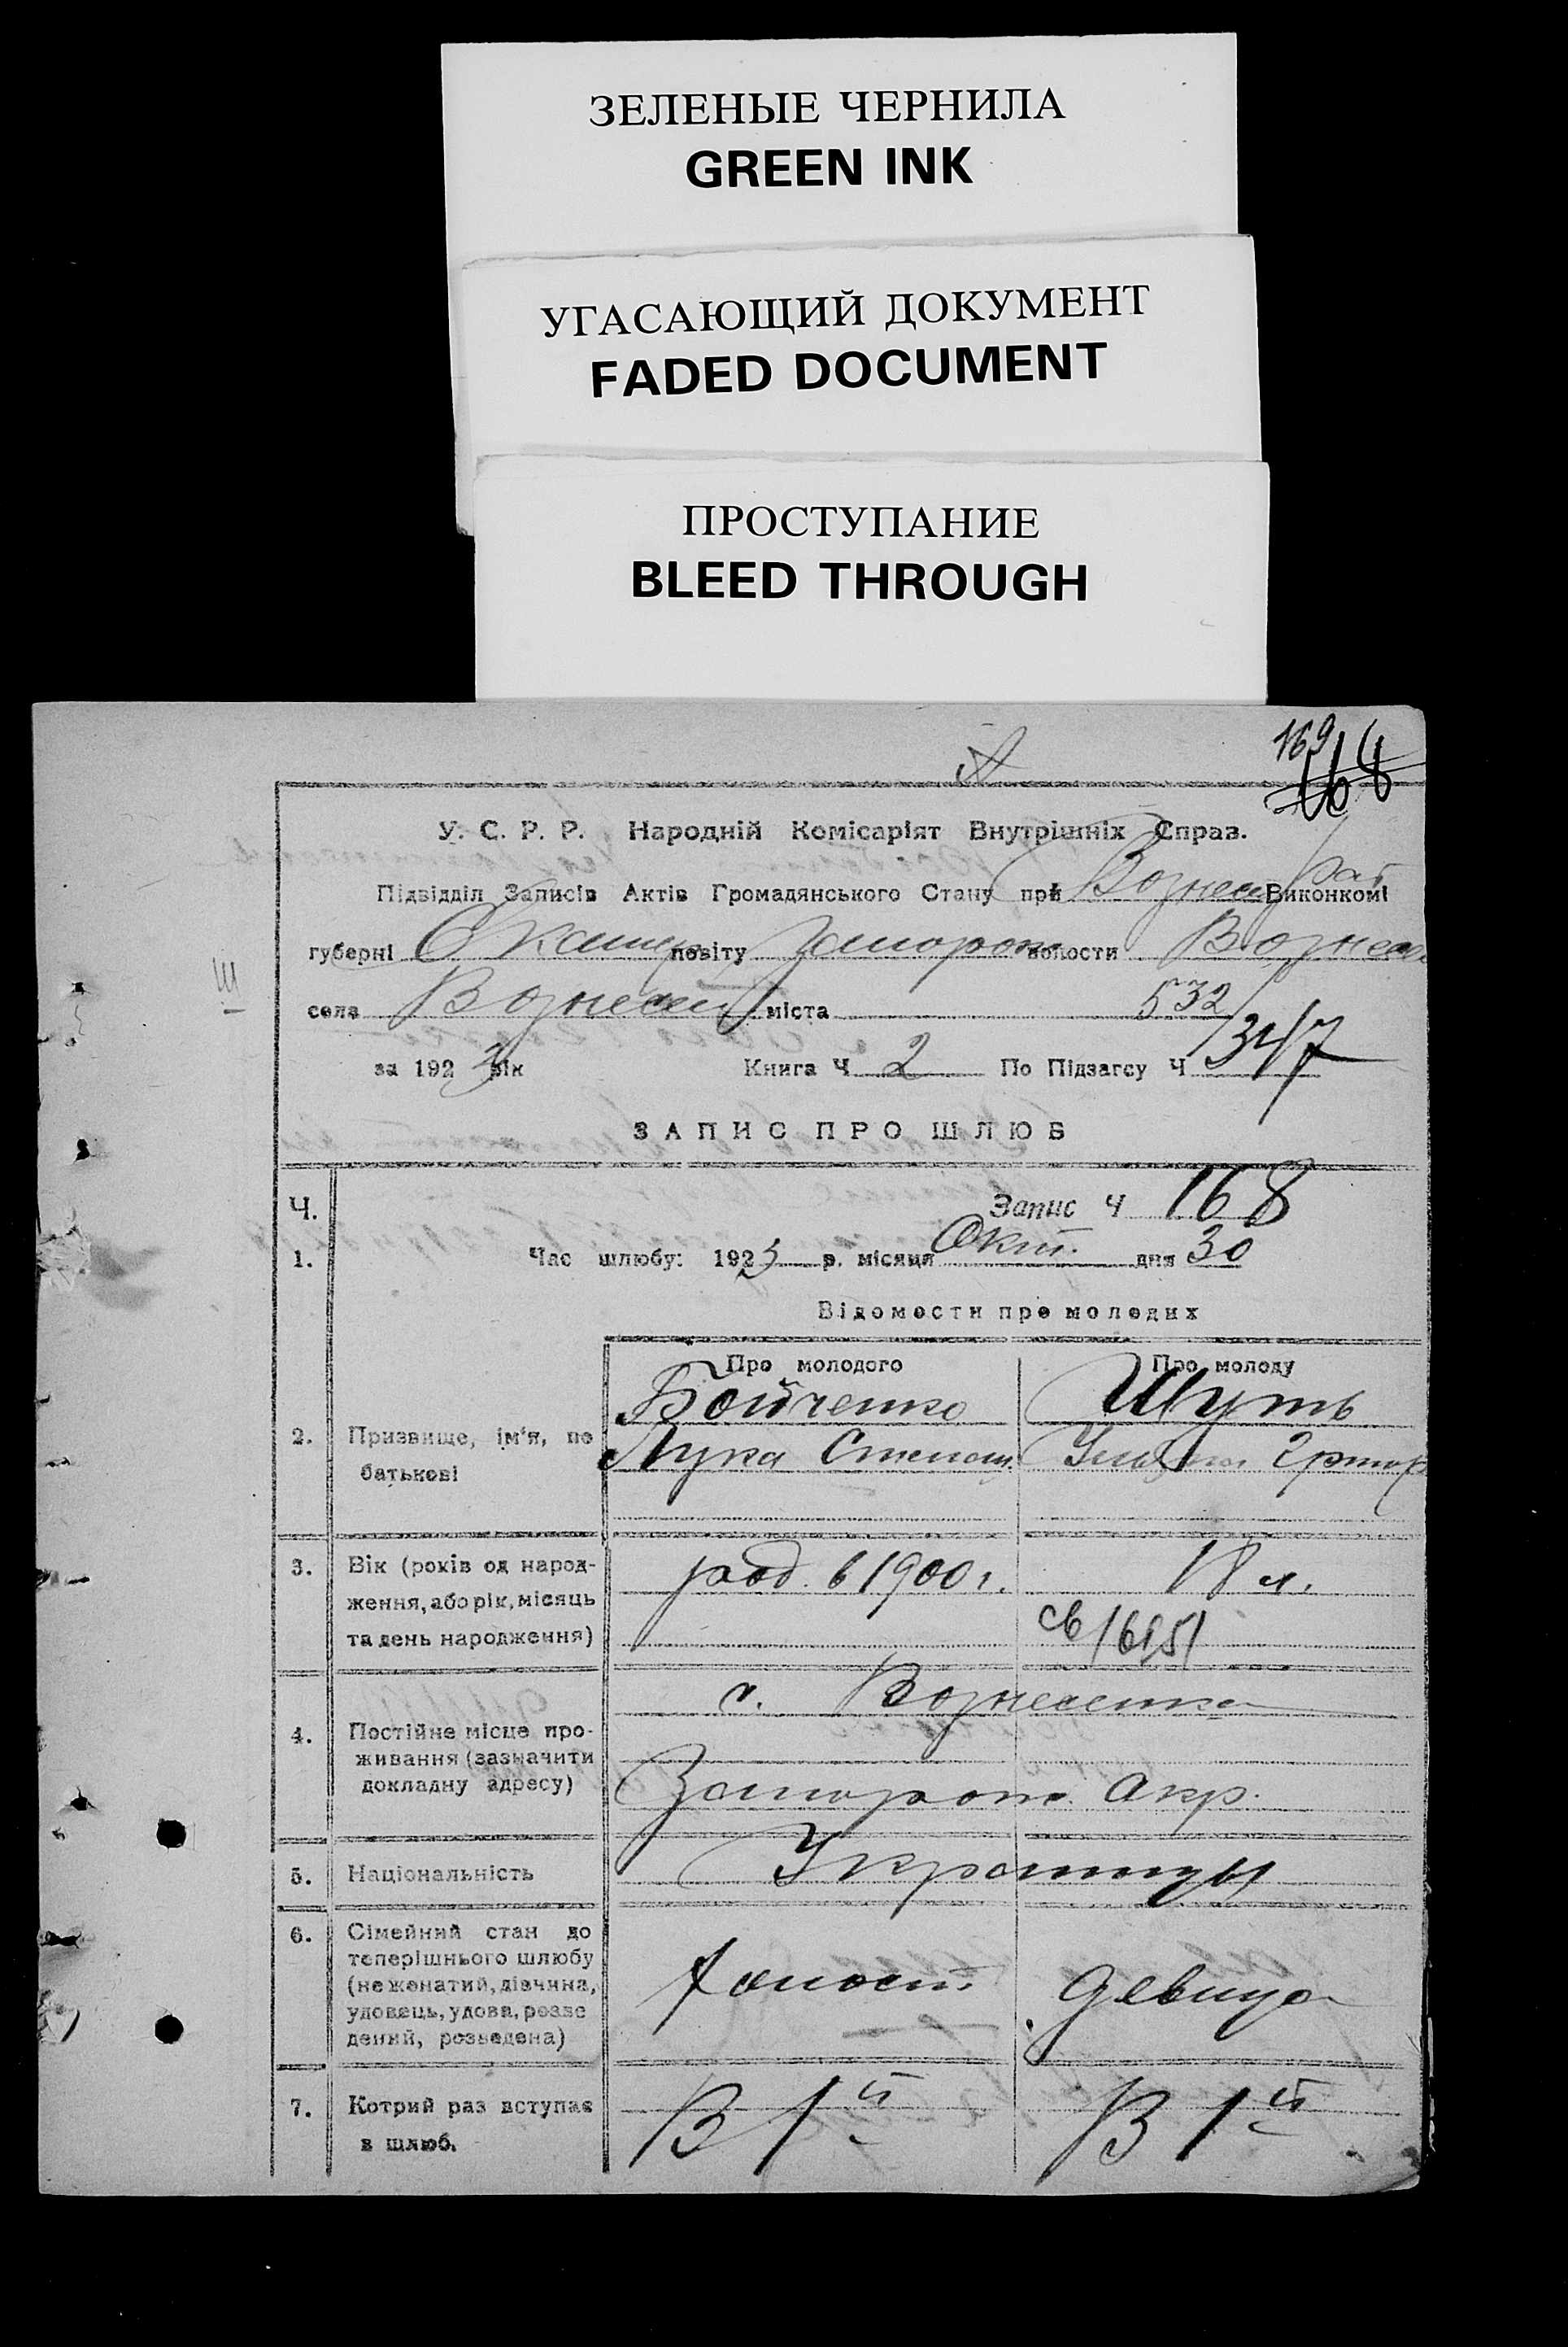 ЗЕЛЕНЫЕ ЧЕРНИЛА
GREEN INK
УГАСАЮЩИЙ ДОКУМЕНТ
FADED DOCUMENT
ПРОСТУПАНИЕ
BLEED THROUGH
169
168
У. С. Р. Р. Народній Комісаріят Внутрішніх Справ.
Підвідділ Записів Актів Громадянського Стану при Вознес Рай Виконкомі
губерні Екатер повіту Запорож волости Вознесен
села Вознесен міста 532
за 1923 рік Книга Ч 2 По Підзагсу Ч 347
ЗАПИС ПРО ШЛЮБ
Ч. Запис Ч 168
1. Час шлюбу: 1923 р. місяця Окт. дня 30
Відомости про молодих
Про молодого Про молоду
Бойченко Шуть
2. Призвище, ім'я, по батькові
Лука Степан. Григор
3. Вік (років од народ-
ження, або рік, місяць
та день народження)
род. в 1900 г. 18 л.
св 1615/
4. Постійне місце про-
живання (зазначити
докладну адресу)
с. Вознесенка
Запорож. Окр.
5. Національність Украинцы
6. Сімейний стан до
теперішнього шлюбу
(не женатий, дівчина,
удовець, удова, розве
дений, розведена)
Холост. Девица
7. Котрий раз вступає
в шлюб.
В 1й В 1й